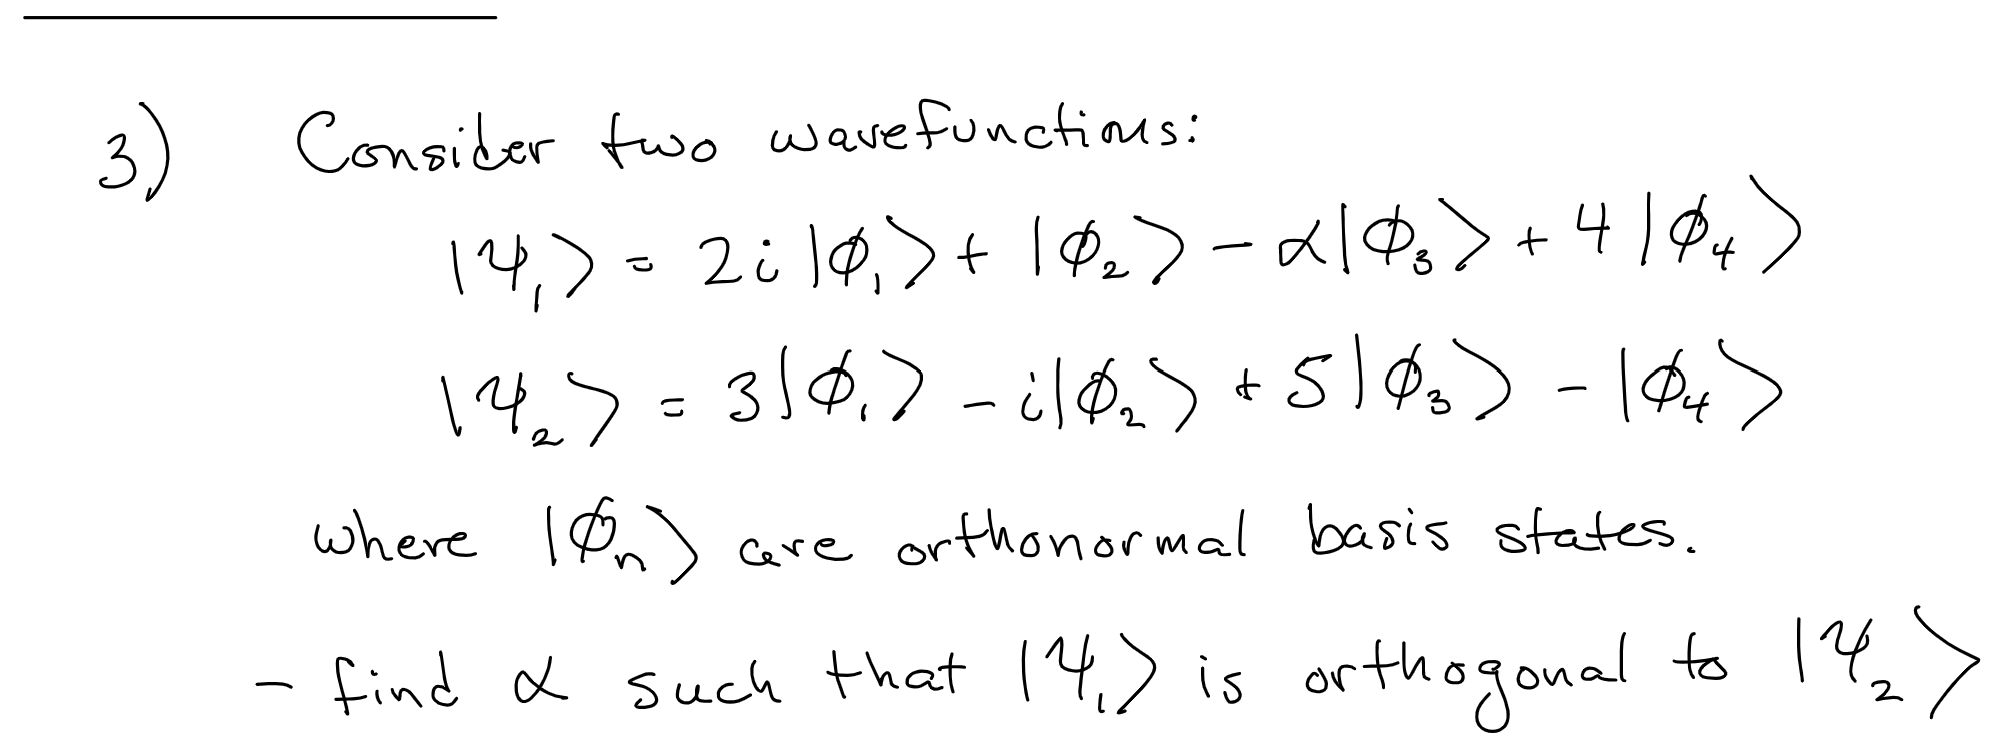 3) Consider two wavefunctions:
|ψ₁⟩ = 2i|ϕ₁⟩ + |ϕ₂⟩ - α|ϕ₃⟩ + 4|ϕ₄⟩
|ψ₂⟩ = 3|ϕ₁⟩ - i|ϕ₂⟩ + 5|ϕ₃⟩ - |ϕ₄⟩
where |ϕₙ⟩ are orthonormal basis states.
- find α such that |ψ₁⟩ is orthogonal to |ψ₂⟩